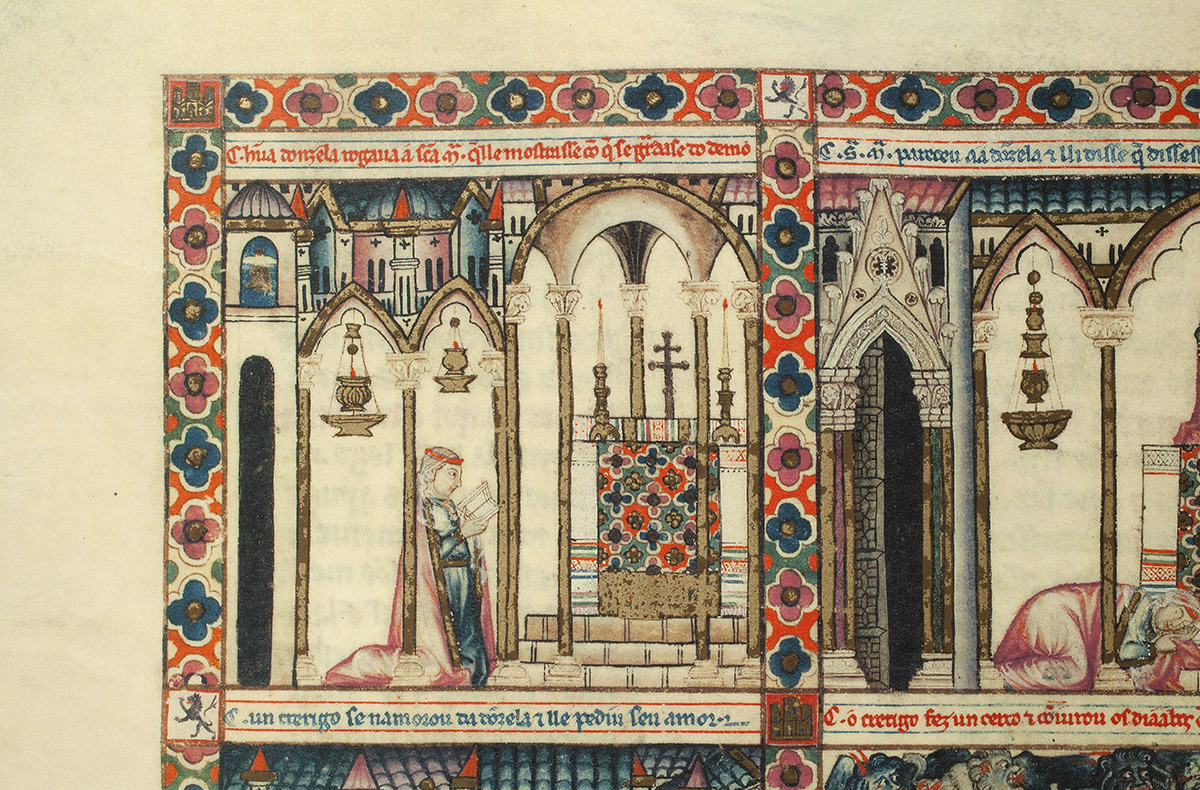 C. hũa donzela rogaua a sc̃a M̃. q̃lle mostrasse cõ q̃ se g̃rdase do demo
C. S. M̃. pareceu aa dõzela ⁊ lli disse q̃ disses
C. un crerigo se namorou da dõzela ⁊ lle pediu seu amor
C. o crerigo fez un cerco ⁊ cõiurou os